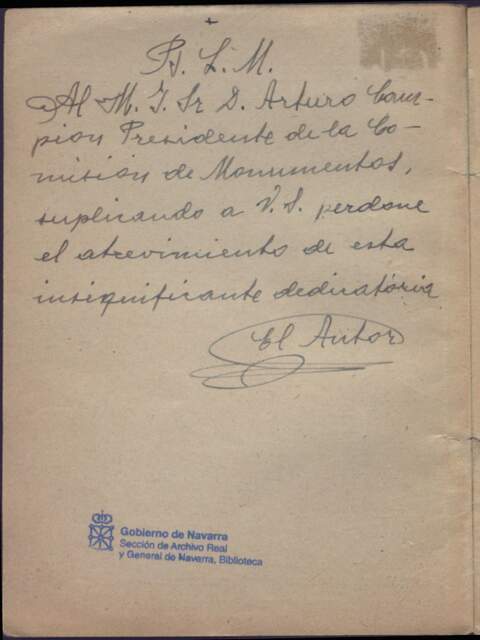 +
B. L. M.
Al M. I. Sr D. Arturo Cam-
pion Presidente de la Co-
mision de Monumentos,
suplicando a V. S. perdone
el atrevimiento de esta
insignificante dedicatoria
El Autor
Gobierno de Navarra
Sección de Archivo Real
y General de Navarra, Biblioteca